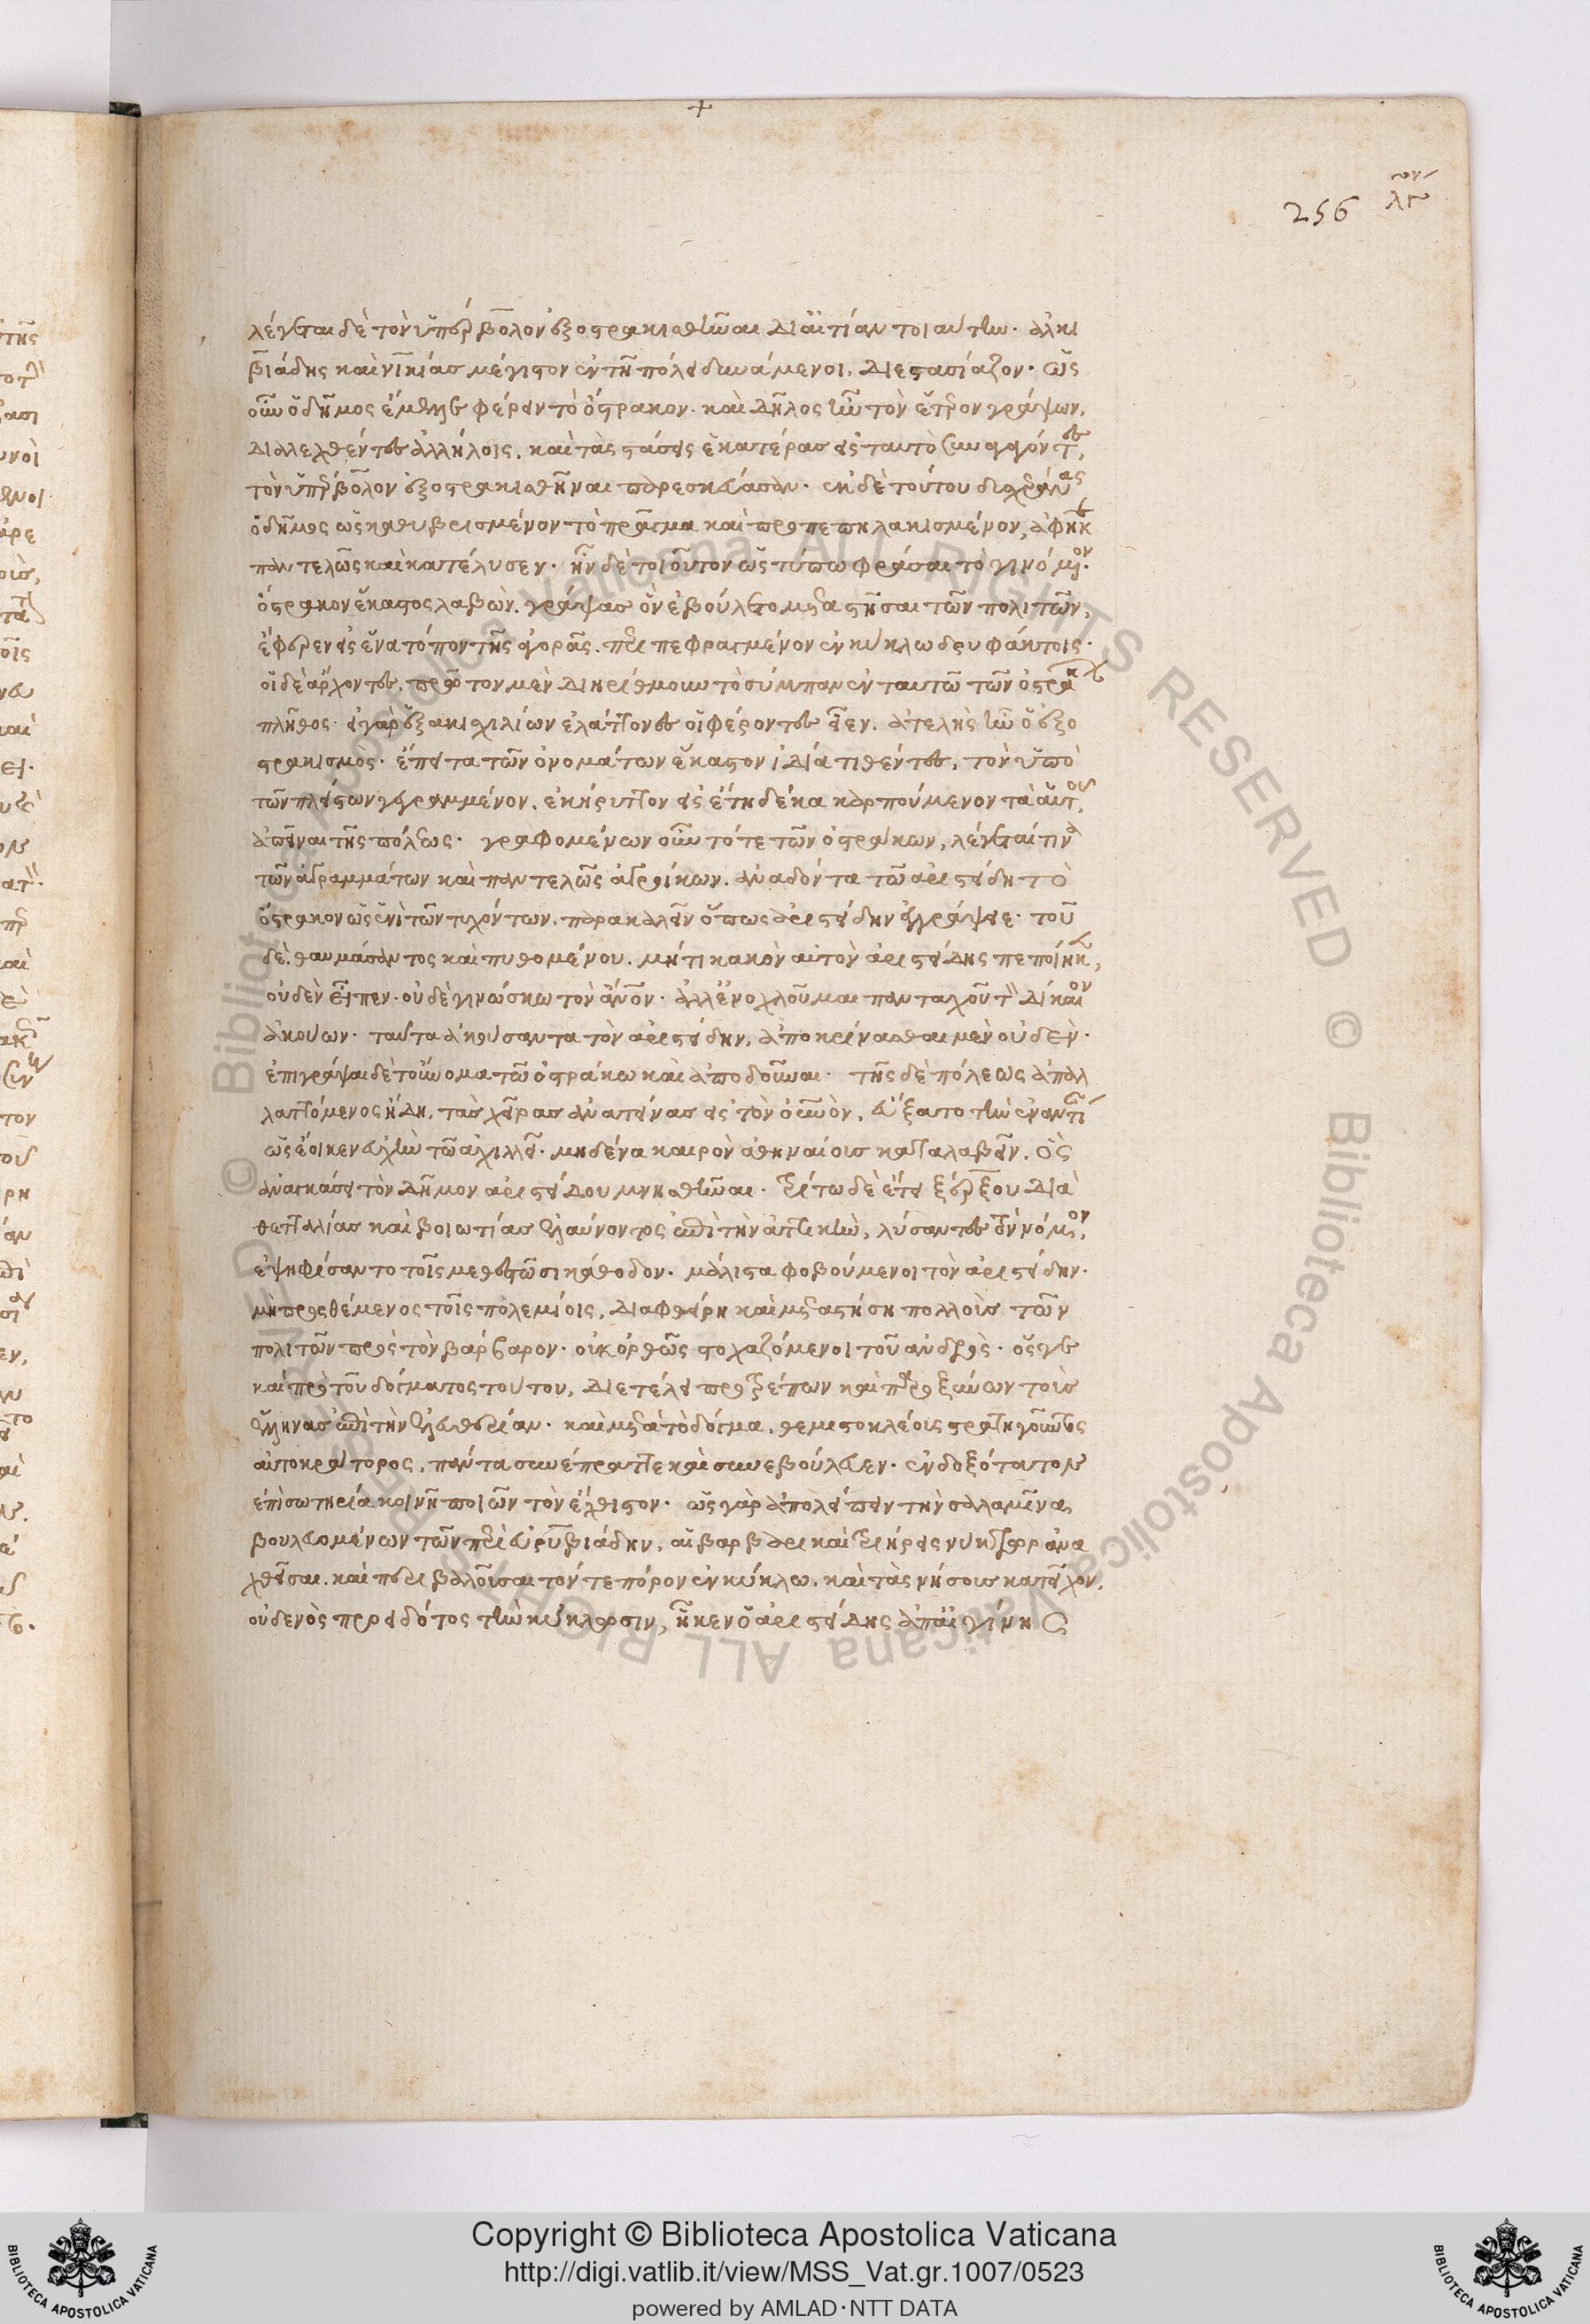 +
256
λέγεται δὲ τὸν ὑπέρβολον ἐξοστρακισθῆναι δι' αἰτίαν τοιαύτην. ἀλκι
βιάδης καὶ νικίας μέγιστον ἐν τῆ πόλει δυνάμενοι, διεστασίαζον. ὡς
οὖν ὁ δῆμος ἔμελλε φέρειν τὸ ὄστρακον. καὶ δῆλος ἦν τὸν ἕτερον γράψων,
διαλεχθέντες ἀλλήλοις, καὶ τὰς στάσεις ἑκατέρας εἰς ταυτὸ συναγαγόντες,
τὸν ὑπέρβολον ἐξοστρακισθῆναι παρεσκεύασαν. ἐκ δὲ τούτου δυσχεράνας
ὁ δῆμος ὡς καθυβρισμένον τὸ πρᾶγμα καὶ προπεπηλακισμένον, ἀφῆκε
παντελῶς καὶ κατέλυσεν. ἦν δὲ τοιοῦτον ὡς τύπω φράσαι τὸ γινόμενον.
ὄστρακον ἕκαστος λαβὼν. γράψας ὃν ἐβούλετο μεταστῆσαι τῶν πολιτῶν,
ἔφερεν εἰς ἕνα τόπον τῆς ἀγορᾶς. περιπεφραγμένον ἐν κύκλω δρυφάκτοις.
οἱ δὲ ἄρχοντες, πρῶτον μὲν διηρίθμουν τὸ σύμπαν ἐν ταυτῶ τῶν ὀστράκων
πλῆθος. εἰ γὰρ ἑξακισχιλίων ἐλάττονες οἱ φέροντες εἶεν. ἀτελὴς ἦν ὁ ἐξο
στρακισμός. ἔπειτα τῶν ὀνομάτων ἕκαστον ἰδία τιθέντες, τὸν ὑπὸ
τῶν πλείστων γεγραμμένον, ἐκήρυττον εἰς ἔτη δέκα καρπούμενον τὰ αὑτοῦ,
ἀπεῖναι τῆς πόλεως. γραφομένων οὖν τότε τῶν ὀστράκων, λέγεταί τινα
τῶν ἀγραμμάτων καὶ παντελῶς ἀγροίκων. ἀναδόντα τῶ ἀριστείδη τὸ
ὄστρακον ὡς ἑνὶ τῶν τυχόντων. παρακαλεῖν ὅπως ἀριστείδην ἐγγράψειε. τοῦ
δὲ θαυμάσαντος καὶ πυθομένου. μή τι κακὸν αὐτὸν ἀριστείδης πεποίηκεν,
οὐδὲν εἶπεν. οὐδὲ γινώσκω τὸν ἄνθρωπον. ἀλλ' ἐνοχλοῦμαι πανταχοῦ τὸν δίκαιον
ἀκούων. ταῦτα ἀκούσαντα τὸν ἀριστείδην, ἀποκρίνασθαι μὲν οὐδὲν.
ἐπιγράψαι δὲ τοὔνομα τῶ ὀστράκω καὶ ἀποδοῦναι. τῆς δὲ πόλεως ἀπαλ
λαττόμενος ἤδη, τὰς χεῖρας ἀνατείνας εἰς τὸν οὐρανὸν, εὔξατο τὴν ἐναντίαν
ὡς ἔοικεν εὐχὴν τῶ ἀχιλλεῖ. μηδένα καιρὸν ἀθηναίους καταλαβεῖν, ὃς
ἀναγκάσει τὸν δῆμον ἀριστείδου μνησθῆναι. τρίτω δὲ ἔτει ξέρξου διὰ
θετταλίας καὶ βοιωτίας ἐλαύνοντος ἐπὶ τὴν ἀττικὴν, λύσαντες τὸν νόμον,
ἐψηφίσαντο τοῖς μεθεστῶσι κάθοδον. μάλιστα φοβούμενοι τὸν ἀριστείδην.
μὴ προσθέμενος τοῖς πολεμίοις, διαφθείρη καὶ μεταστήση πολλοὺς τῶν
πολιτῶν πρὸς τὸν βάρβαρον. οὐκ ὀρθῶς στοχαζόμενοι τοῦ ἀνδρὸς. ὅς γε
καὶ πρὸ τοῦ δόγματος τούτου, διετέλει προτρέπων καὶ παροξύνων τοὺς
ἕλληνας ἐπὶ τὴν ἐλευθερίαν. καὶ μετὰ τὸ δόγμα, θεμιστοκλέους στρατηγοῦντος
αὐτοκράτορος, πάντα συνέπραττε καὶ συνεβούλευεν. ἐνδοξότατον
ἐπὶ σωτηρία κοινῆ ποιῶν τὸν ἔχθιστον. ὡς γὰρ ἀπολείπειν τὴν σαλαμῖνα
βουλευομένων τῶν περὶ εὐρυβιάδην, αἱ βαρβαρικαὶ τριήρεις νύκτωρ ἀνα
χθεῖσαι. καὶ περιβαλοῦσαι τόν τε πόρον ἐν κύκλω. καὶ τὰς νήσους κατεῖχον,
οὐδενὸς προειδότος τὴν κύκλωσιν, ἧκεν ὁ ἀριστείδης ἀπ' αἰγίνης
Copyright © Biblioteca Apostolica Vaticana
http://digi.vatlib.it/view/MSS_Vat.gr.1007/0523
powered by AMLAD·NTT DATA